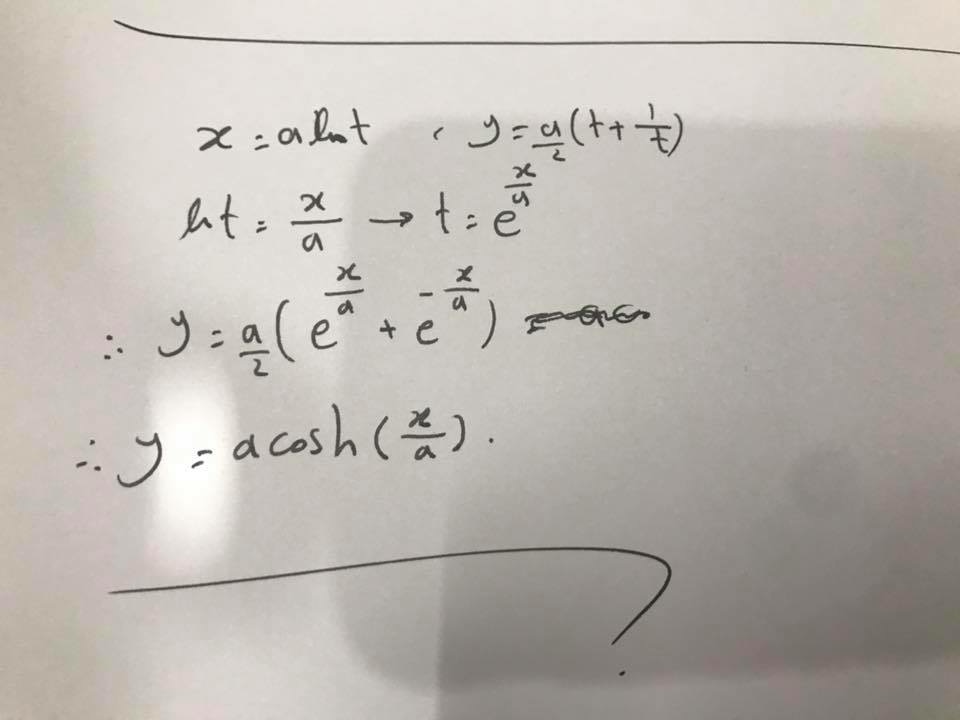 x = a ln t , y = a/2 (t + 1/t)
ln t = x/a → t = e^(x/a)
∴ y = a/2 (e^(x/a) + e^(-x/a))
∴ y = a cosh (x/a) .